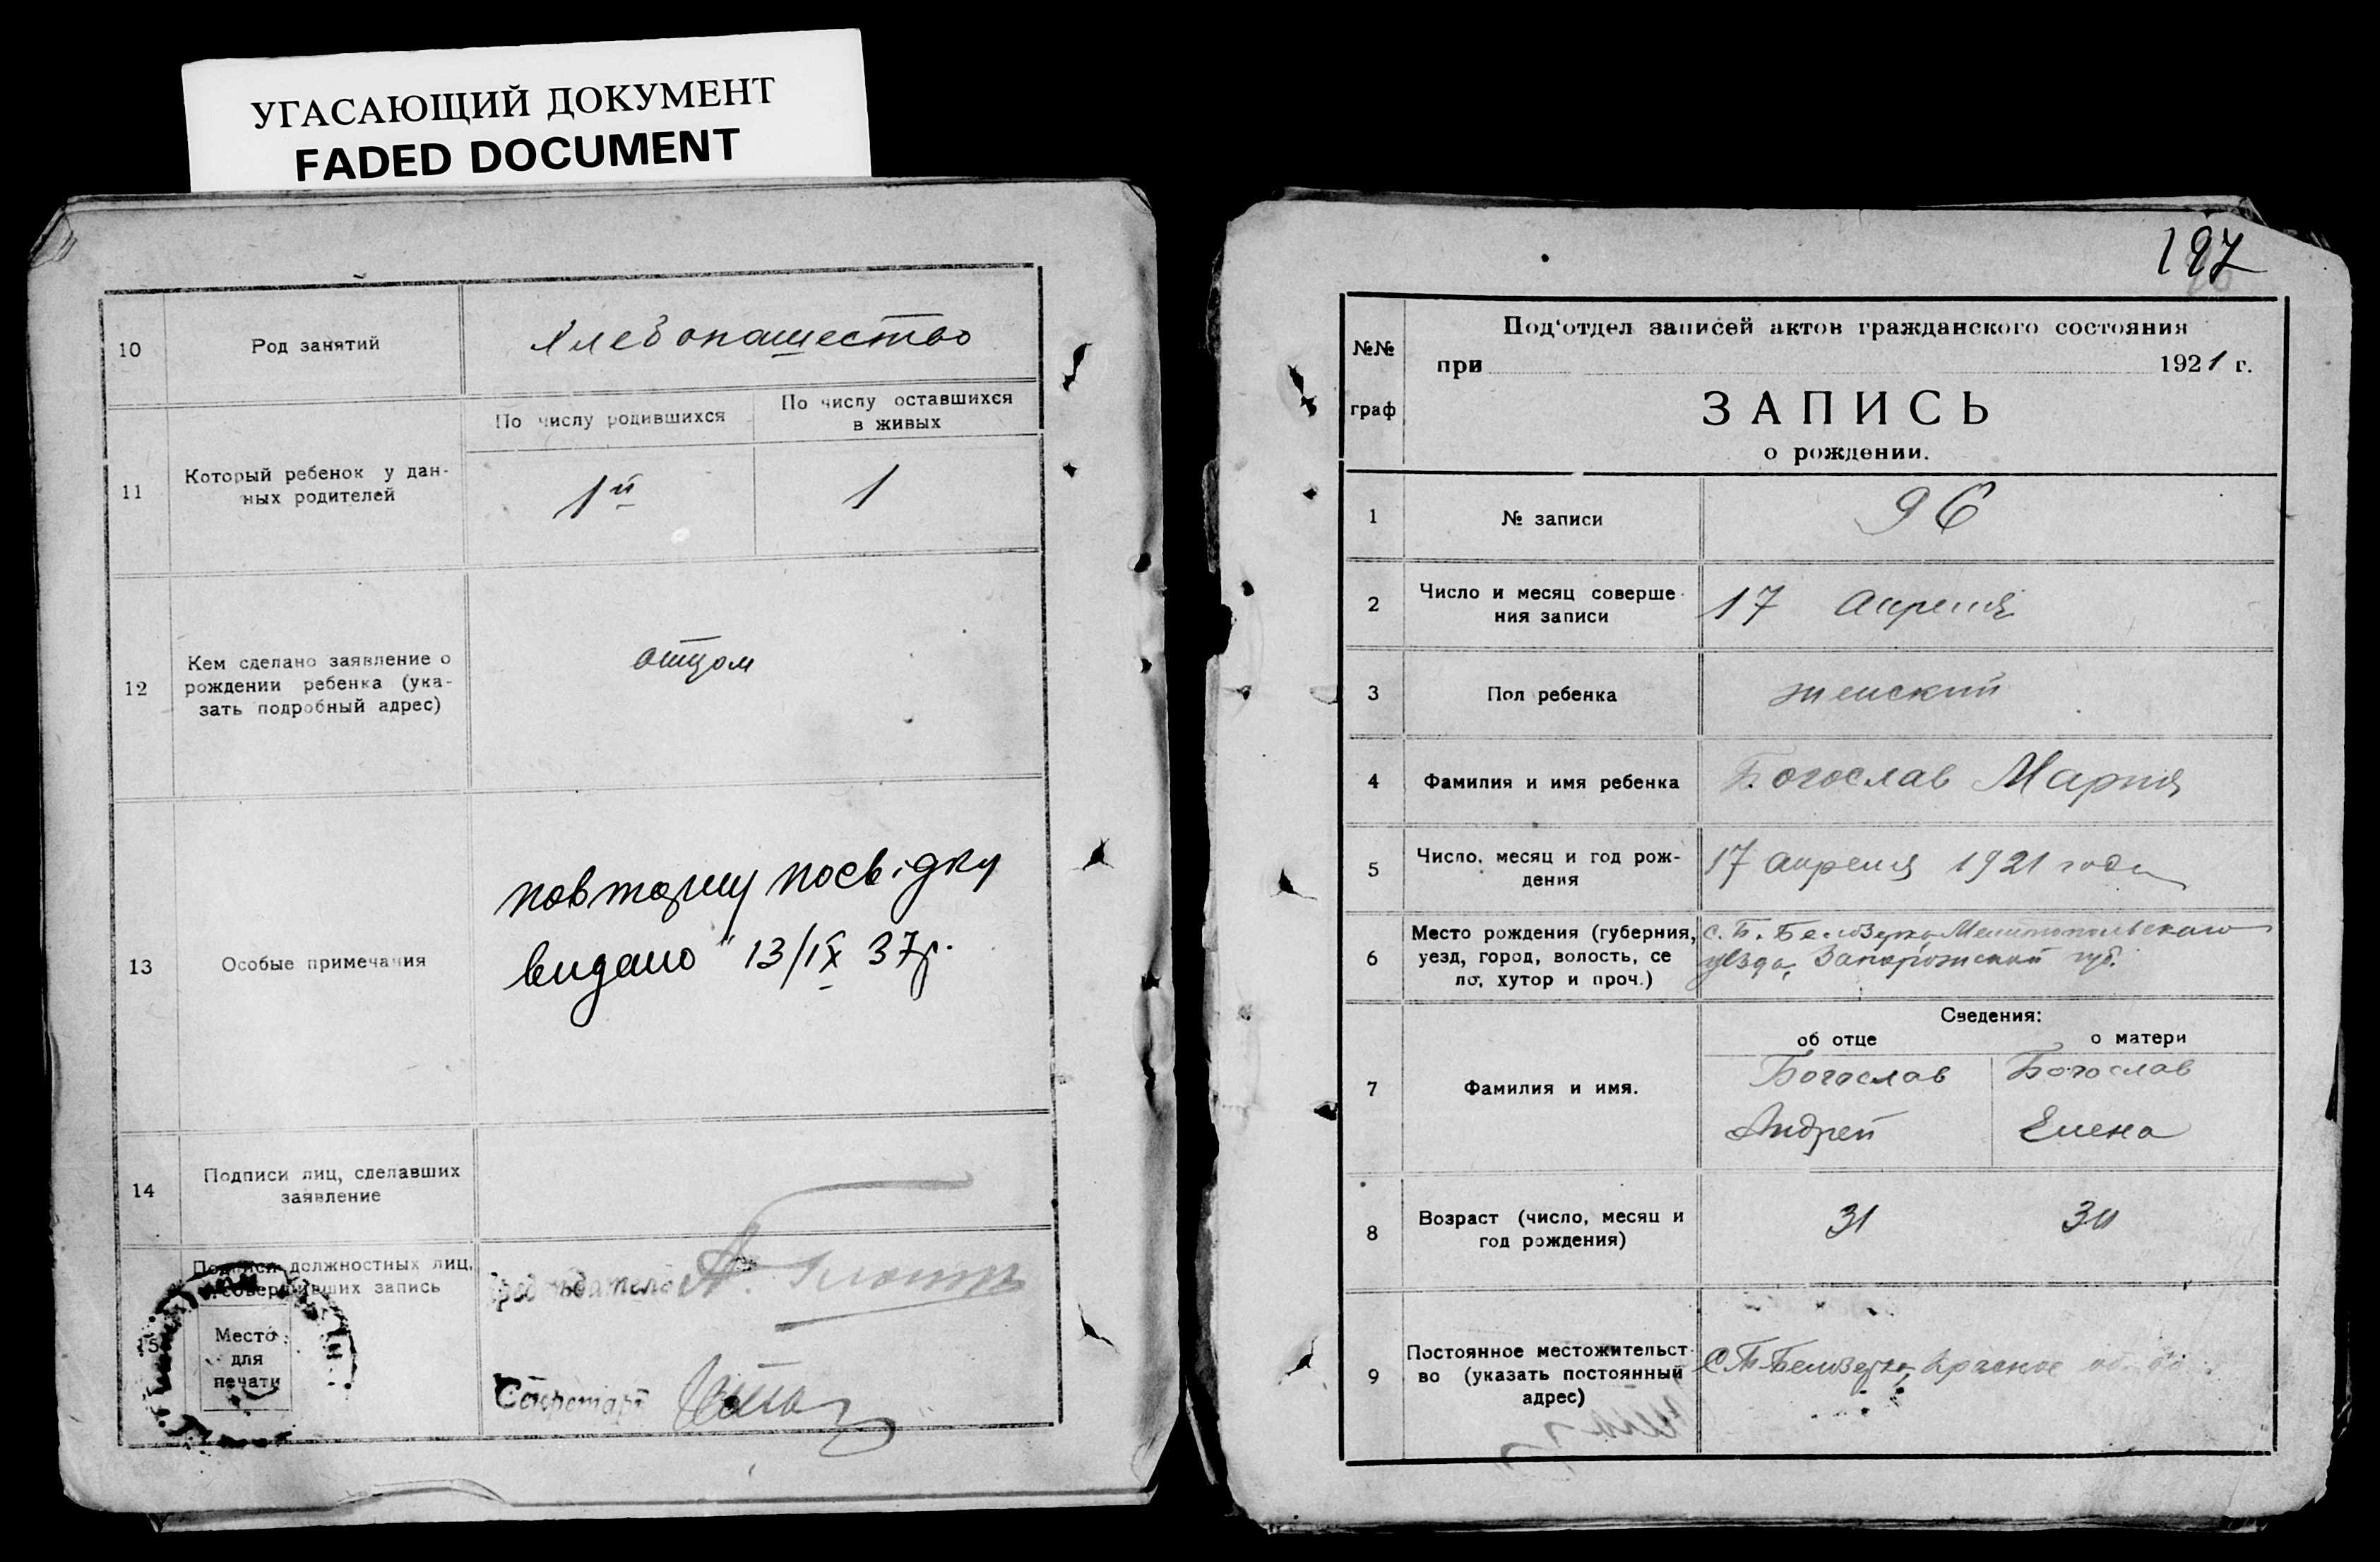 УГАСАЮЩИЙ ДОКУМЕНТ
FADED DOCUMENT
10
Род занятий
Хлебопашество
11
Который ребенок у дан-
ных родителей
По числу родившихся
По числу оставшихся
в живых
1й
1
12
Кем сделано заявление о
рождении ребенка (ука-
зать подробный адрес)
отцом
13
Особые примечания
повторну посвідку
видано 13/IX 37р.
14
Подписи лиц, сделавших
заявление
15
Подписи должностных лиц,
совершивших запись
Место
для
печати
Председатель А.
Секретарь
197
№№
граф
Под'отдел записей актов гражданского состояния
при 1921 г.
ЗАПИСЬ
о рождении.
1
№ записи
96
2
Число и месяц соверше-
ния записи
17 апреля
3
Пол ребенка
женский
4
Фамилия и имя ребенка
Богослав Мария
5
Число, месяц и год рож-
дения
17 апреля 1921 года
6
Место рождения (губерния,
уезд, город, волость, се
ло, хутор и проч.)
с. Б. Белозерка, Мелитопольского
уезда, Запорожской губ.
Сведения:
об отце
о матери
7
Фамилия и имя.
Богослав
Андрей
Богослав
Елена
8
Возраст (число, месяц и
год рождения)
31
30
9
Постоянное местожительст-
во (указать постоянный
адрес)
С. Б. Белозерка, Красное